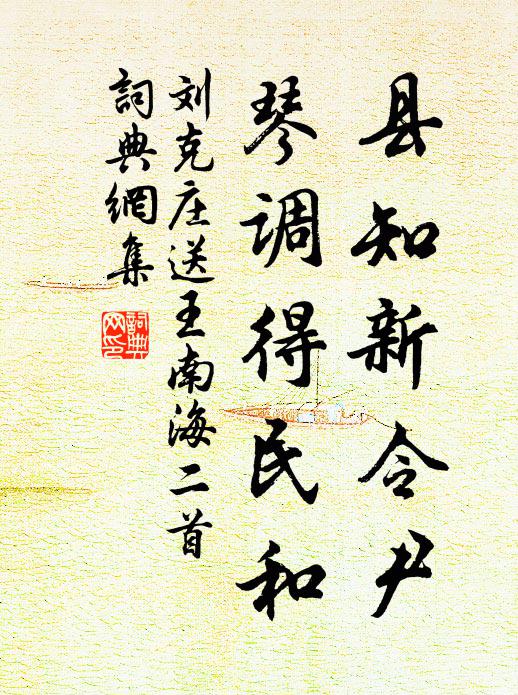 县知新令尹
琴调得民和
刘克庄送王南海二首
詞典網集
詞典网印